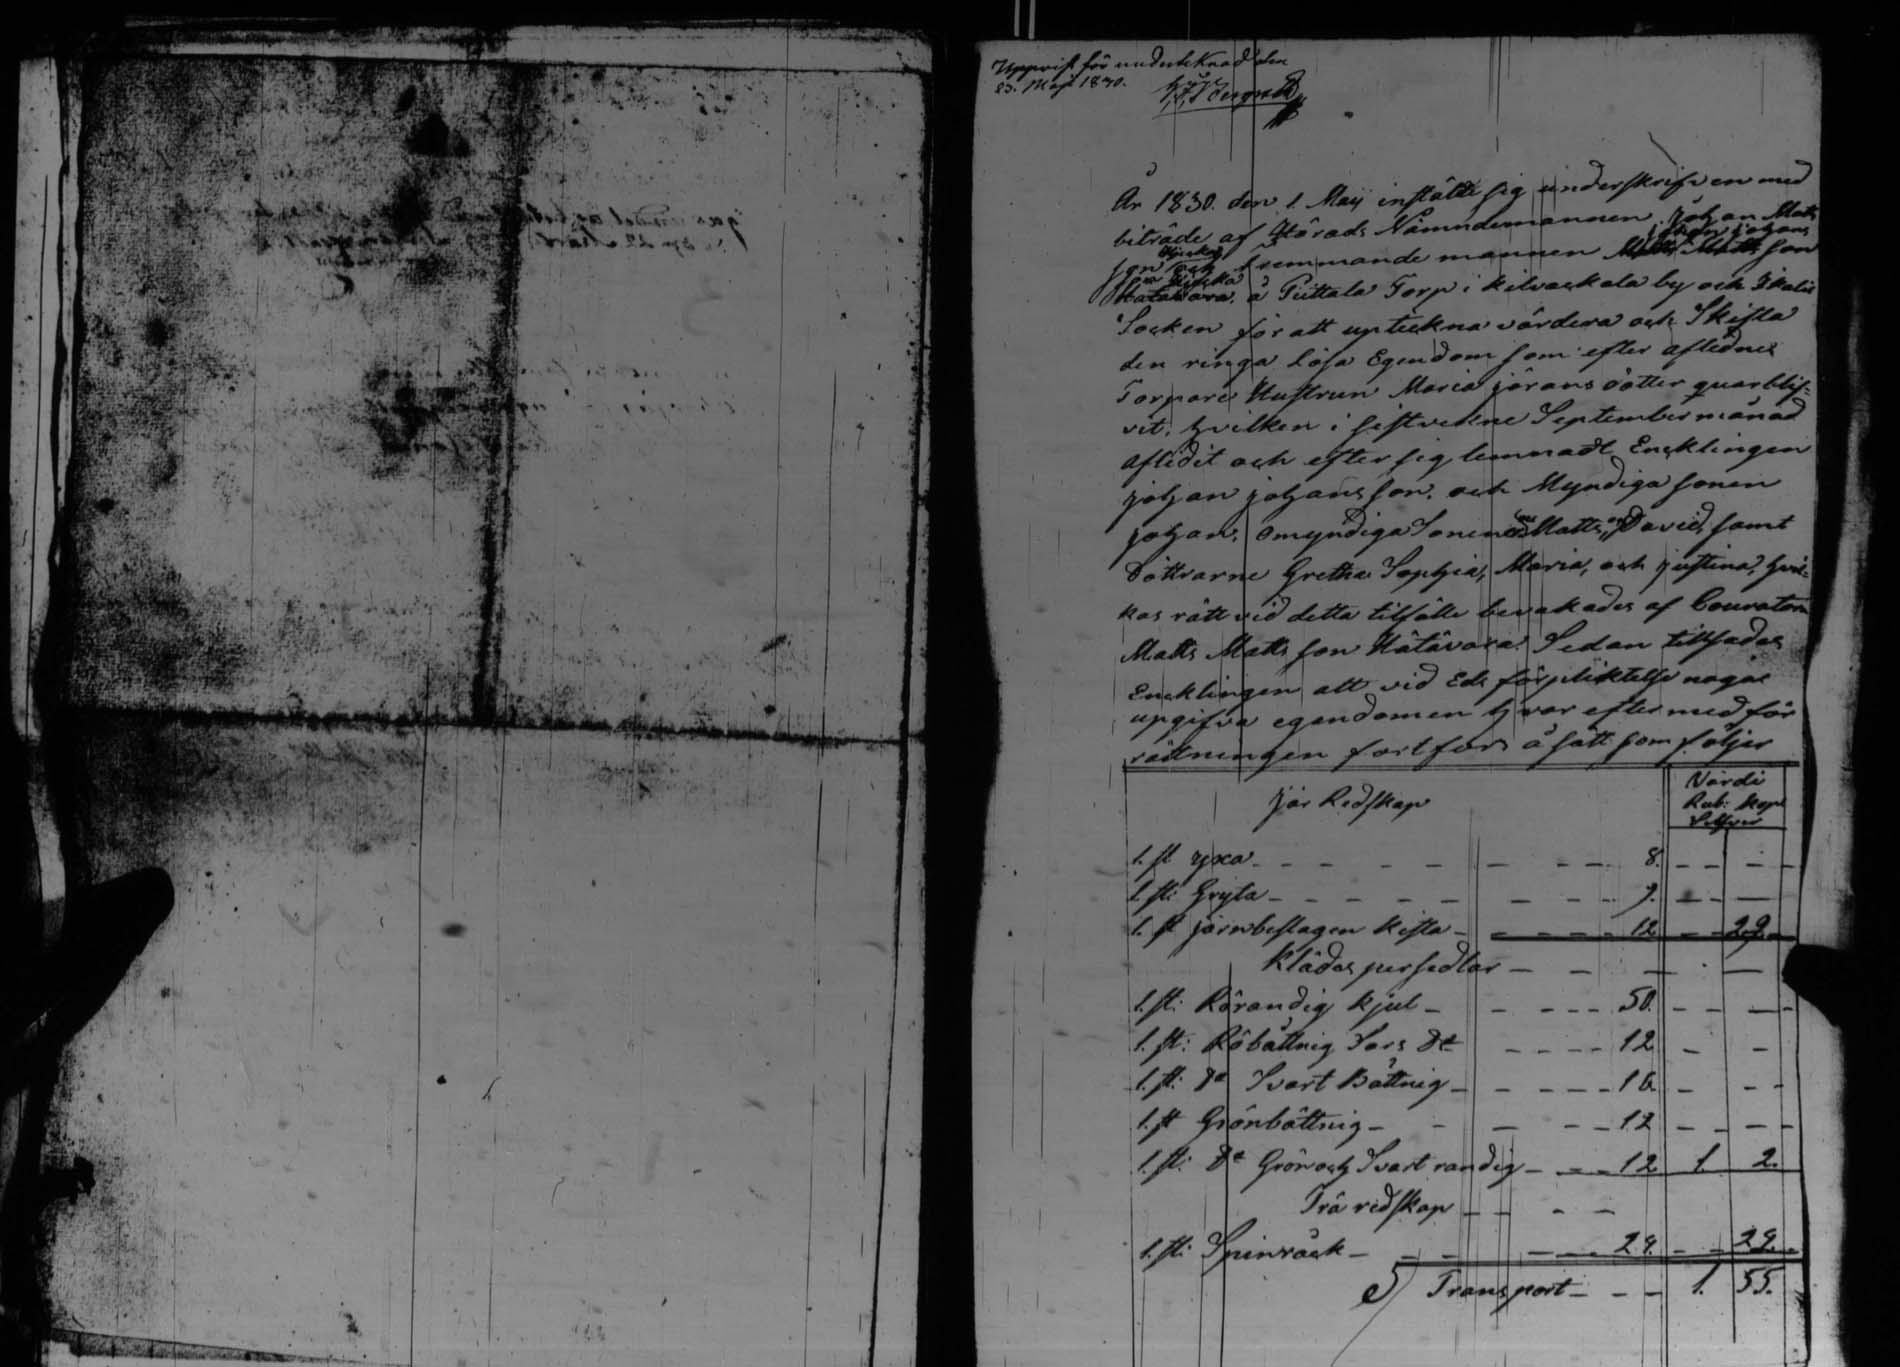 Uppvist för undertecknad den
23. Maji 1830.
År 1830. den 1. Maij instälde sig underskrifven med
biträde af Härads Nämndemannen Johan Matts
son och fremmande mannen Johan Johans
son
å Puttala Torp i Kilvackala by och Ikalis
Socken för att uptekna värdera och Skifta
den ringa lösa Egendom som efter aflednes
Torpare Hustrun Maria Jörans dotter quarblif-
vit, hvilken i sistvekne September månad
aflidit och efter sig lemnadt Encklingen
Johan Johansson, och Myndiga sonen
Johan, omyndiga Sonerne Matts, och David, samt
döttrarne Gretha Sophia, Maria, och Justina, hvil-
kas rätt vid detta tilfälle bevakades af Couratorn
Matts Matts son Hätävara. Sedan tillsades
Encklingen att vid Eds förpliktelse noga
upgifva egendomen hvar efter med för
rättningen fortfors å sätt som följer
Värdi
Rub: Kop
Silfver
Jär Redskap
1. st yxa - - - 8.
1. st: Gryta - - - 9.
1. st järnbeslagen kista - - - 12 - - 29.
Klädes persedlar - -
1. st: Rörandig kjul - - - 50.
1. st: Röbåttnig Sars do - - - 12
1. st: do Svart Båttnig - - - 16
1. st Grönbåttnig - - - 12
1. st: do Grön och Svart randig - - - 12 1. 2.
Trä redskap - -
1. st: Spinråck - - - 24. - - 24.
S Transport - - - 1. 55.